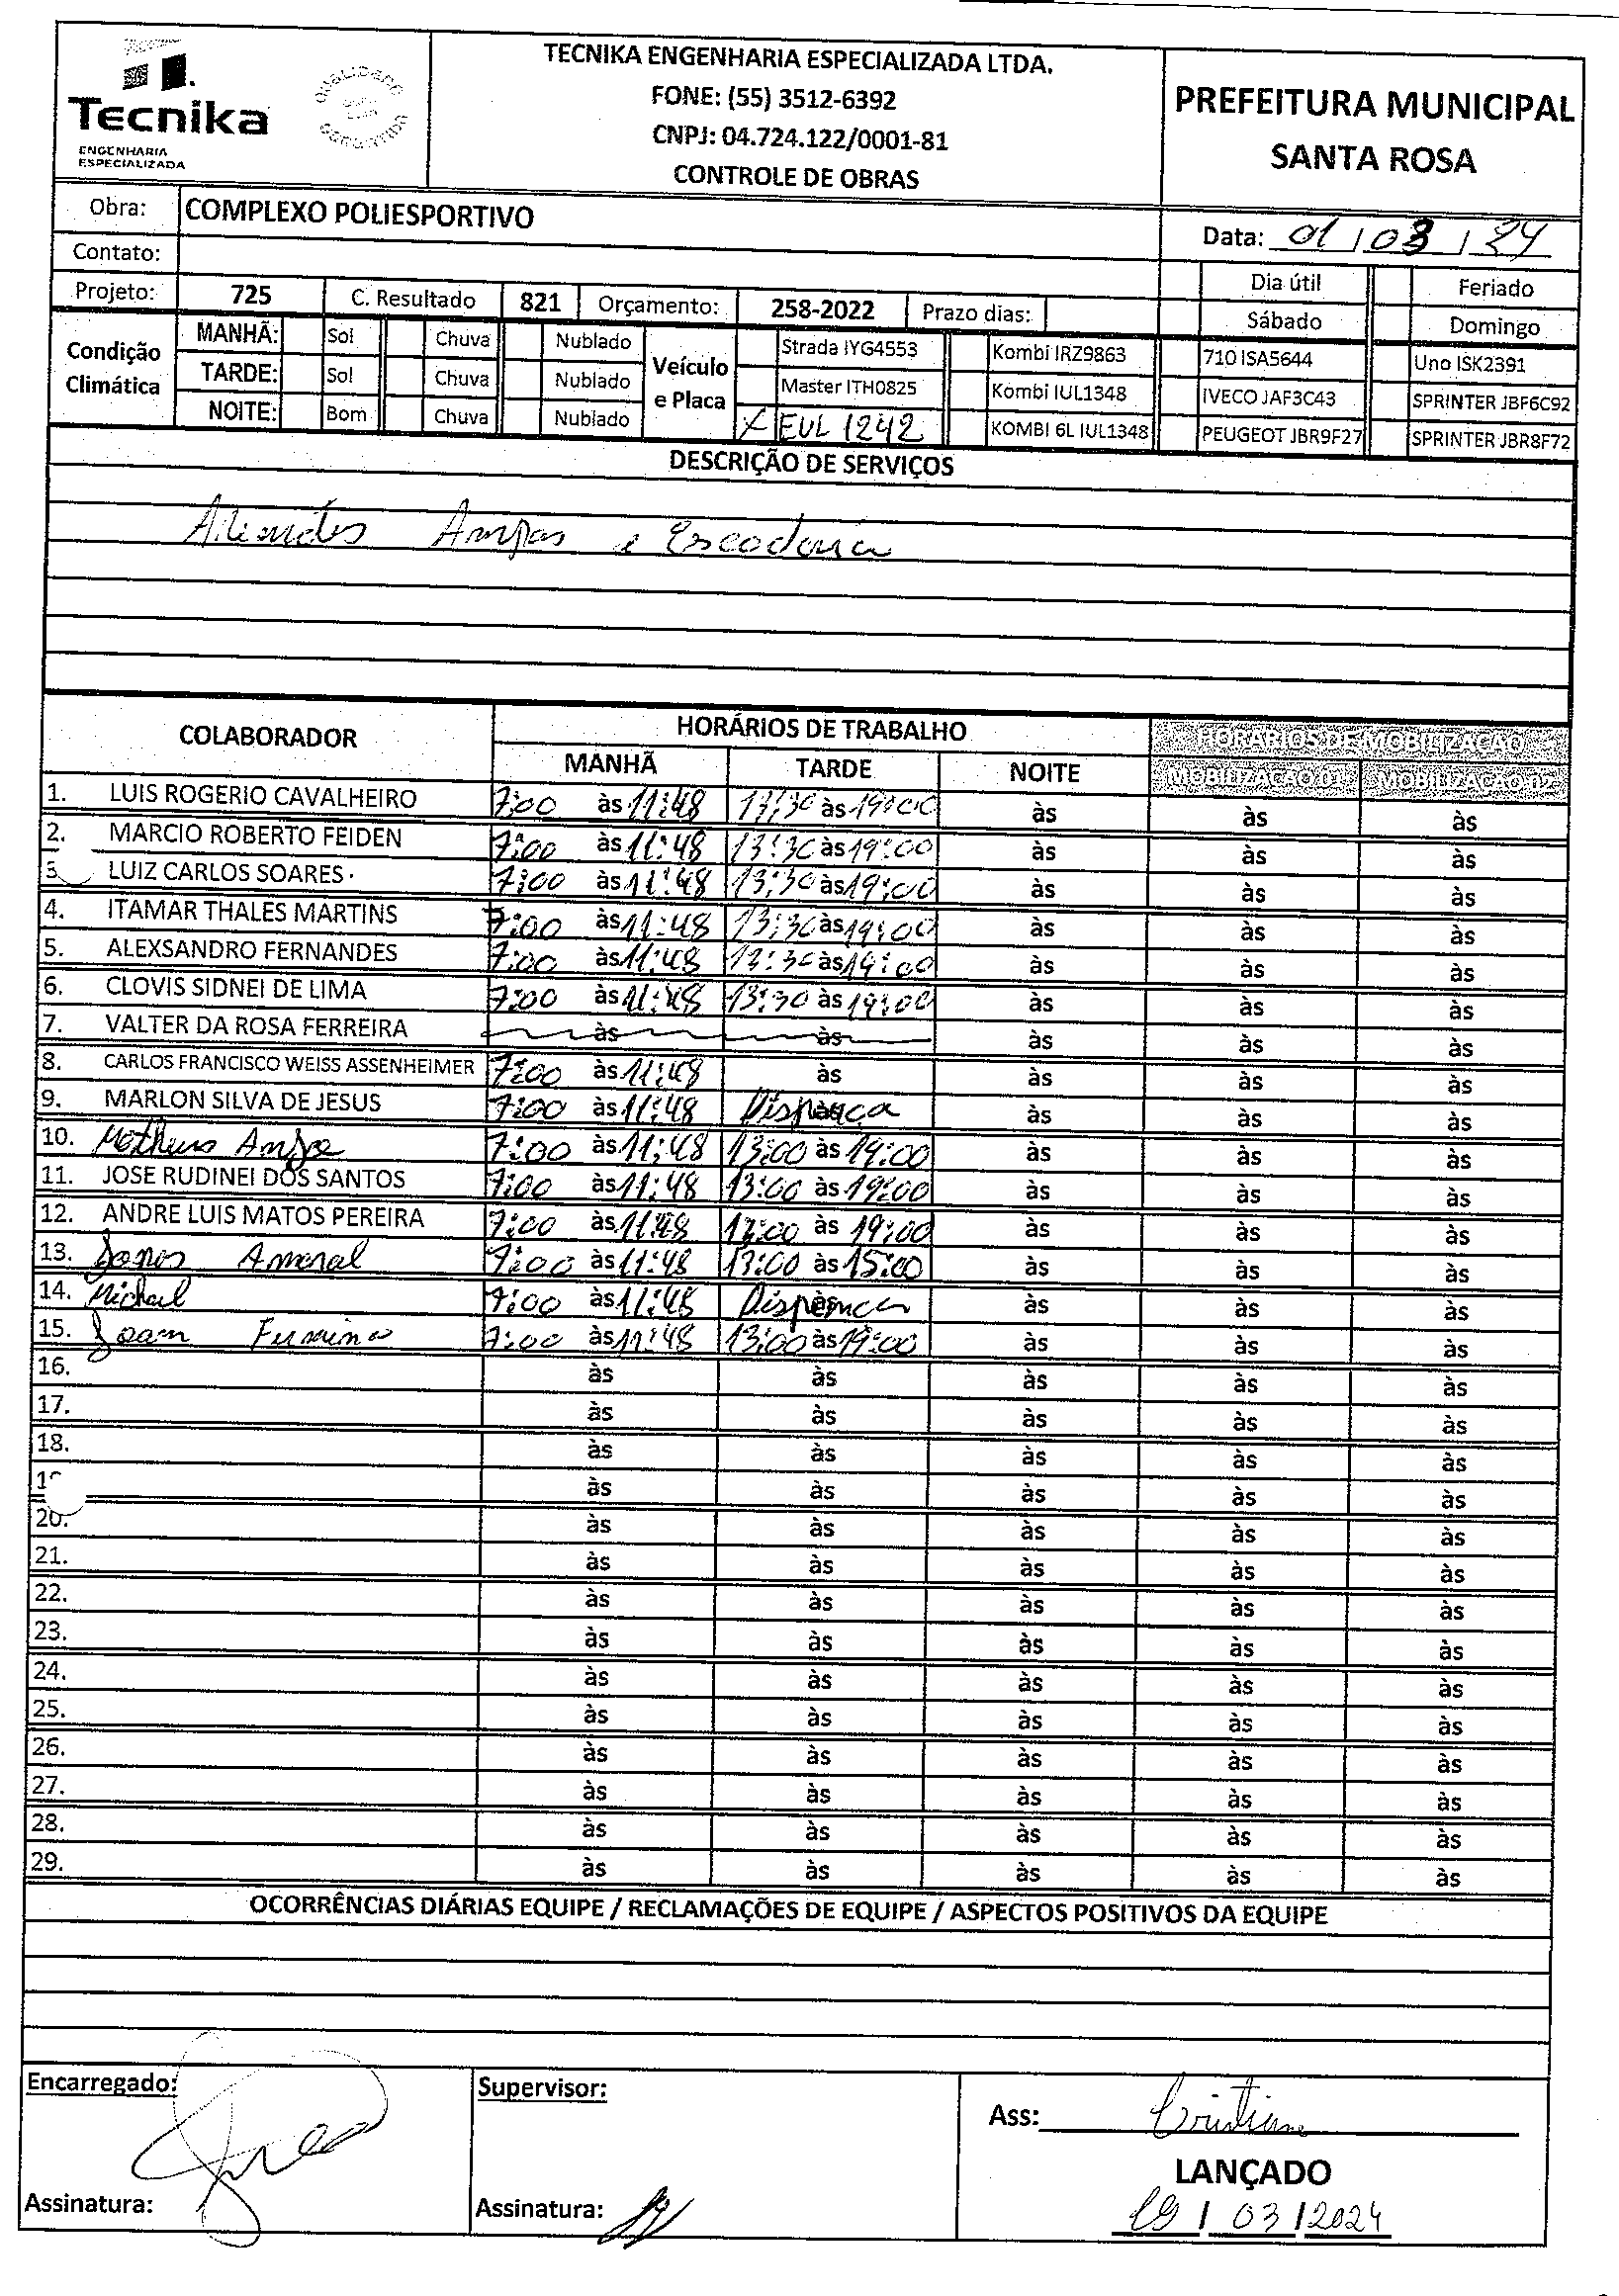 Tecnika
ENGENHARIA
ESPECIALIZADA
QUALIDADE
GARANTIDA
TECNIKA ENGENHARIA ESPECIALIZADA LTDA.
FONE: (55) 3512-6392
CNPJ: 04.724.122/0001-81
CONTROLE DE OBRAS
PREFEITURA MUNICIPAL
SANTA ROSA
Obra: COMPLEXO POLIESPORTIVO
Data: 01 / 03 / 24
Contato:
Dia útil Feriado
Projeto: 725 C. Resultado 821 Orçamento: 258-2022 Prazo dias:
Sábado Domingo
Condição Climática
MANHÃ: Sol Chuva Nublado
TARDE: Sol Chuva Nublado
NOITE: Bom Chuva Nublado
Veículo e Placa
Strada IYG4553 Kombi IRZ9863 710 ISA5644 Uno ISK2391
Master ITH0825 Kombi IUL1348 IVECO JAF3C43 SPRINTER JBF6C92
X EUL 1242 KOMBI 6L IUL1348 PEUGEOT JBR9F27 SPRINTER JBR8F72
DESCRIÇÃO DE SERVIÇOS
e Escadaria
COLABORADOR HORÁRIOS DE TRABALHO HORÁRIOS DE MOBILIZAÇÃO
MANHÃ TARDE NOITE MOBILIZAÇÃO 01 MOBILIZAÇÃO 02
1. LUIS ROGERIO CAVALHEIRO 7:00 às 11:48 13:30 às 19:00 às às às
2. MARCIO ROBERTO FEIDEN 7:00 às 11:48 13:30 às 19:00 às às às
3 LUIZ CARLOS SOARES 7:00 às 11:48 13:30 às 19:00 às às às
4. ITAMAR THALES MARTINS 7:00 às 11:48 13:30 às 19:00 às às às
5. ALEXSANDRO FERNANDES 7:00 às 11:48 13:30 às 19:00 às às às
6. CLOVIS SIDNEI DE LIMA 7:00 às 11:48 13:30 às 19:00 às às às
7. VALTER DA ROSA FERREIRA às às às às às
8. CARLOS FRANCISCO WEISS ASSENHEIMER 7:00 às 11:48 às às às às
9. MARLON SILVA DE JESUS 7:00 às 11:48 Dispença às às às às
10. Matheus 7:00 às 11:48 13:00 às 19:00 às às às
11. JOSE RUDINEI DOS SANTOS 7:00 às 11:48 13:00 às 19:00 às às às
12. ANDRE LUIS MATOS PEREIRA 7:00 às 11:48 13:00 às 19:00 às às às
13. Amaral 7:00 às 11:48 13:00 às 15:00 às às às
14. Michael 7:00 às 11:48 às às às às
15. 7:00 às 11:48 13:00 às 19:00 às às às
16. às às às às às
17. às às às às às
18. às às às às às
19 às às às às às
20. às às às às às
21. às às às às às
22. às às às às às
23. às às às às às
24. às às às às às
25. às às às às às
26. às às às às às
27. às às às às às
28. às às às às às
29. às às às às às
OCORRÊNCIAS DIÁRIAS EQUIPE / RECLAMAÇÕES DE EQUIPE / ASPECTOS POSITIVOS DA EQUIPE
Encarregado: Supervisor:
Ass: Cristiane
LANÇADO
Assinatura: Assinatura:
19 / 03 / 2024